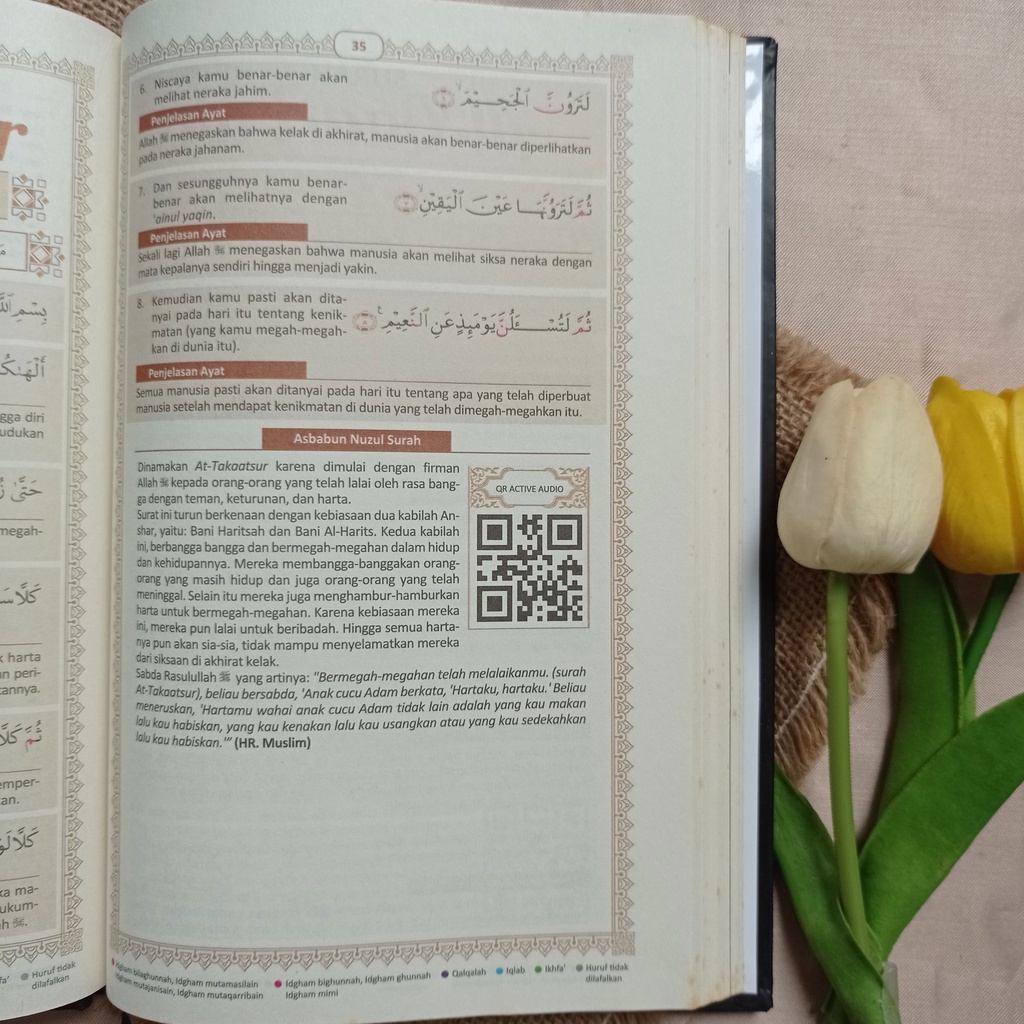 35
6. Niscaya kamu benar-benar akan
melihat neraka jahim.
لَتَرَوُنَّ ٱلْجَحِيمَ ۙ ٦
Penjelasan Ayat
Allah ﷻ menegaskan bahwa kelak di akhirat, manusia akan benar-benar diperlihatkan
pada neraka jahanam.
7. Dan sesungguhnya kamu benar-
benar akan melihatnya dengan
'ainul yaqin.
ثُمَّ لَتَرَوُنَّهَا عَيْنَ ٱلْيَقِينِ ۙ ٧
Penjelasan Ayat
Sekali lagi Allah ﷻ menegaskan bahwa manusia akan melihat siksa neraka dengan
mata kepalanya sendiri hingga menjadi yakin.
8. Kemudian kamu pasti akan dita-
nyai pada hari itu tentang kenik-
matan (yang kamu megah-megah-
kan di dunia itu).
ثُمَّ لَتُسْـَٔلُنَّ يَوْمَئِذٍ عَنِ ٱلنَّعِيمِ ۚ ٨
Penjelasan Ayat
Semua manusia pasti akan ditanyai pada hari itu tentang apa yang telah diperbuat
manusia setelah mendapat kenikmatan di dunia yang telah dimegah-megahkan itu.
Asbabun Nuzul Surah
Dinamakan At-Takaatsur karena dimulai dengan firman
Allah ﷻ kepada orang-orang yang telah lalai oleh rasa bang-
ga dengan teman, keturunan, dan harta.
Surat ini turun berkenaan dengan kebiasaan dua kabilah An-
shar, yaitu: Bani Haritsah dan Bani Al-Harits. Kedua kabilah
ini, berbangga bangga dan bermegah-megahan dalam hidup
dan kehidupannya. Mereka membangga-banggakan orang-
orang yang masih hidup dan juga orang-orang yang telah
meninggal. Selain itu mereka juga menghambur-hamburkan
harta untuk bermegah-megahan. Karena kebiasaan mereka
ini, mereka pun lalai untuk beribadah. Hingga semua harta-
nya pun akan sia-sia, tidak mampu menyelamatkan mereka
dari siksaan di akhirat kelak.
QR ACTIVE AUDIO
Sabda Rasulullah ﷺ yang artinya: "Bermegah-megahan telah melalaikanmu. (surah
At-Takaatsur), beliau bersabda, 'Anak cucu Adam berkata, 'Hartaku, hartaku.' Beliau
meneruskan, 'Hartamu wahai anak cucu Adam tidak lain adalah yang kau makan
lalu kau habiskan, yang kau kenakan lalu kau usangkan atau yang kau sedekahkan
lalu kau habiskan.'" (HR. Muslim)
Idgham bilaghunnah, Idgham mutamasilain
Idgham mutajanisain, Idgham mutaqarribain
Idgham bighunnah, Idgham ghunnah
Idgham mimi
Qalqalah
Iqlab
Ikhfa'
Huruf tidak
dilafalkan
gga diri
udukan
megah-
k harta
n peri-
tannya.
emper-
an.
ka ma-
ukum-
h ﷻ.
fa'
Huruf tidak
dilafalkan